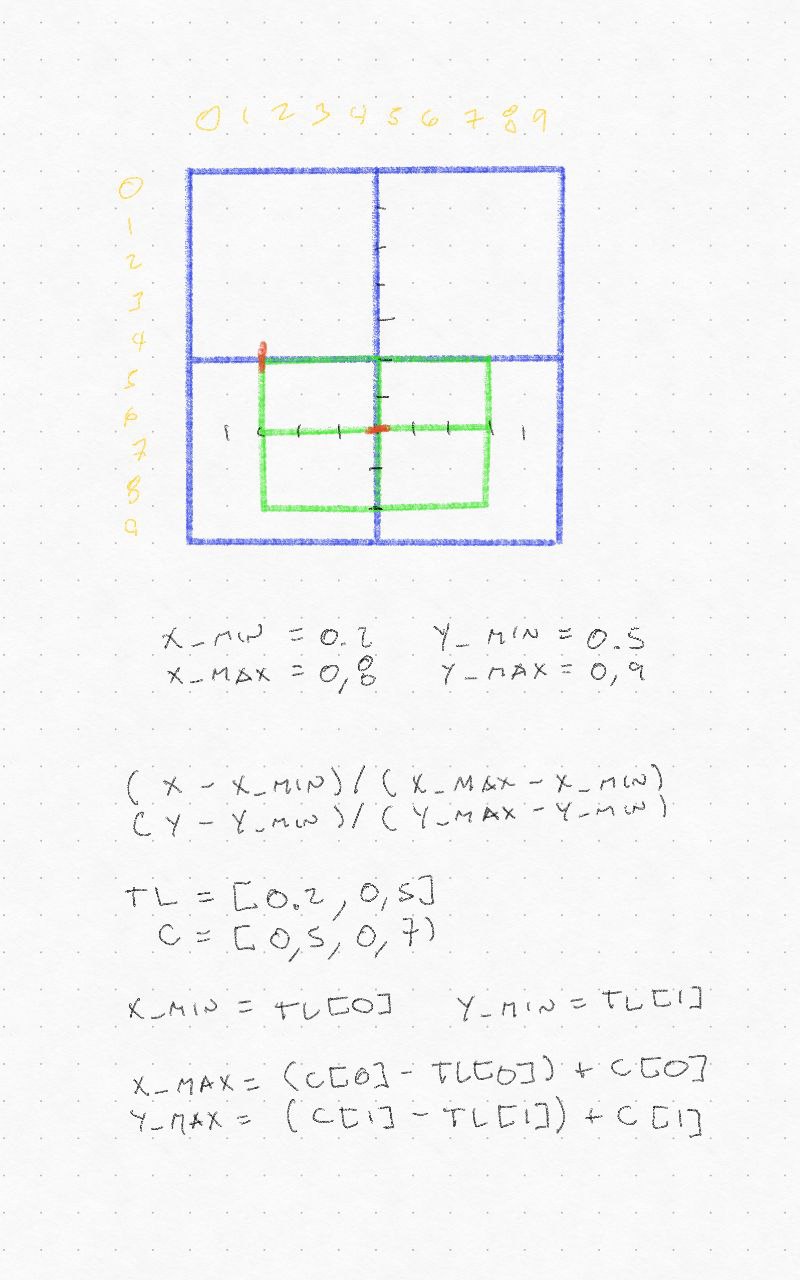 0 1 2 3 4 5 6 7 8 9
0
1
2
3
4
5
6
7
8
9
X_MIN = 0.2 Y_MIN = 0.5
X_MAX = 0,8 Y_MAX = 0,9
(X - X_MIN)/(X_MAX - X_MIN)
(Y - Y_MIN)/(Y_MAX - Y_MIN)
TL = [0.2, 0,5]
C = [0,5, 0,7)
X_MIN = TL[0] Y_MIN = TL[1]
X_MAX = (C[0] - TL[0]) + C[0]
Y_MAX = (C[1] - TL[1]) + C[1]